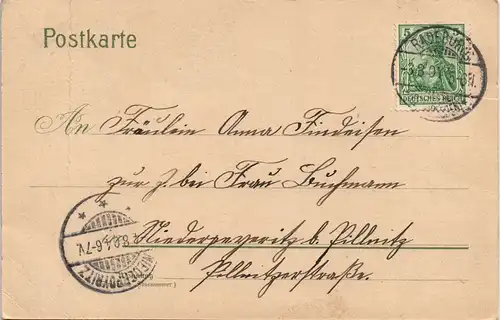 Postkarte
5
RADEBURG
DEUTSCHES REICH
An Fräulein Anna Findeisen
zur Z. bei Frau Buchmann
Niedergeyeritz b. Pillnitz
Pillnitzerstraße.